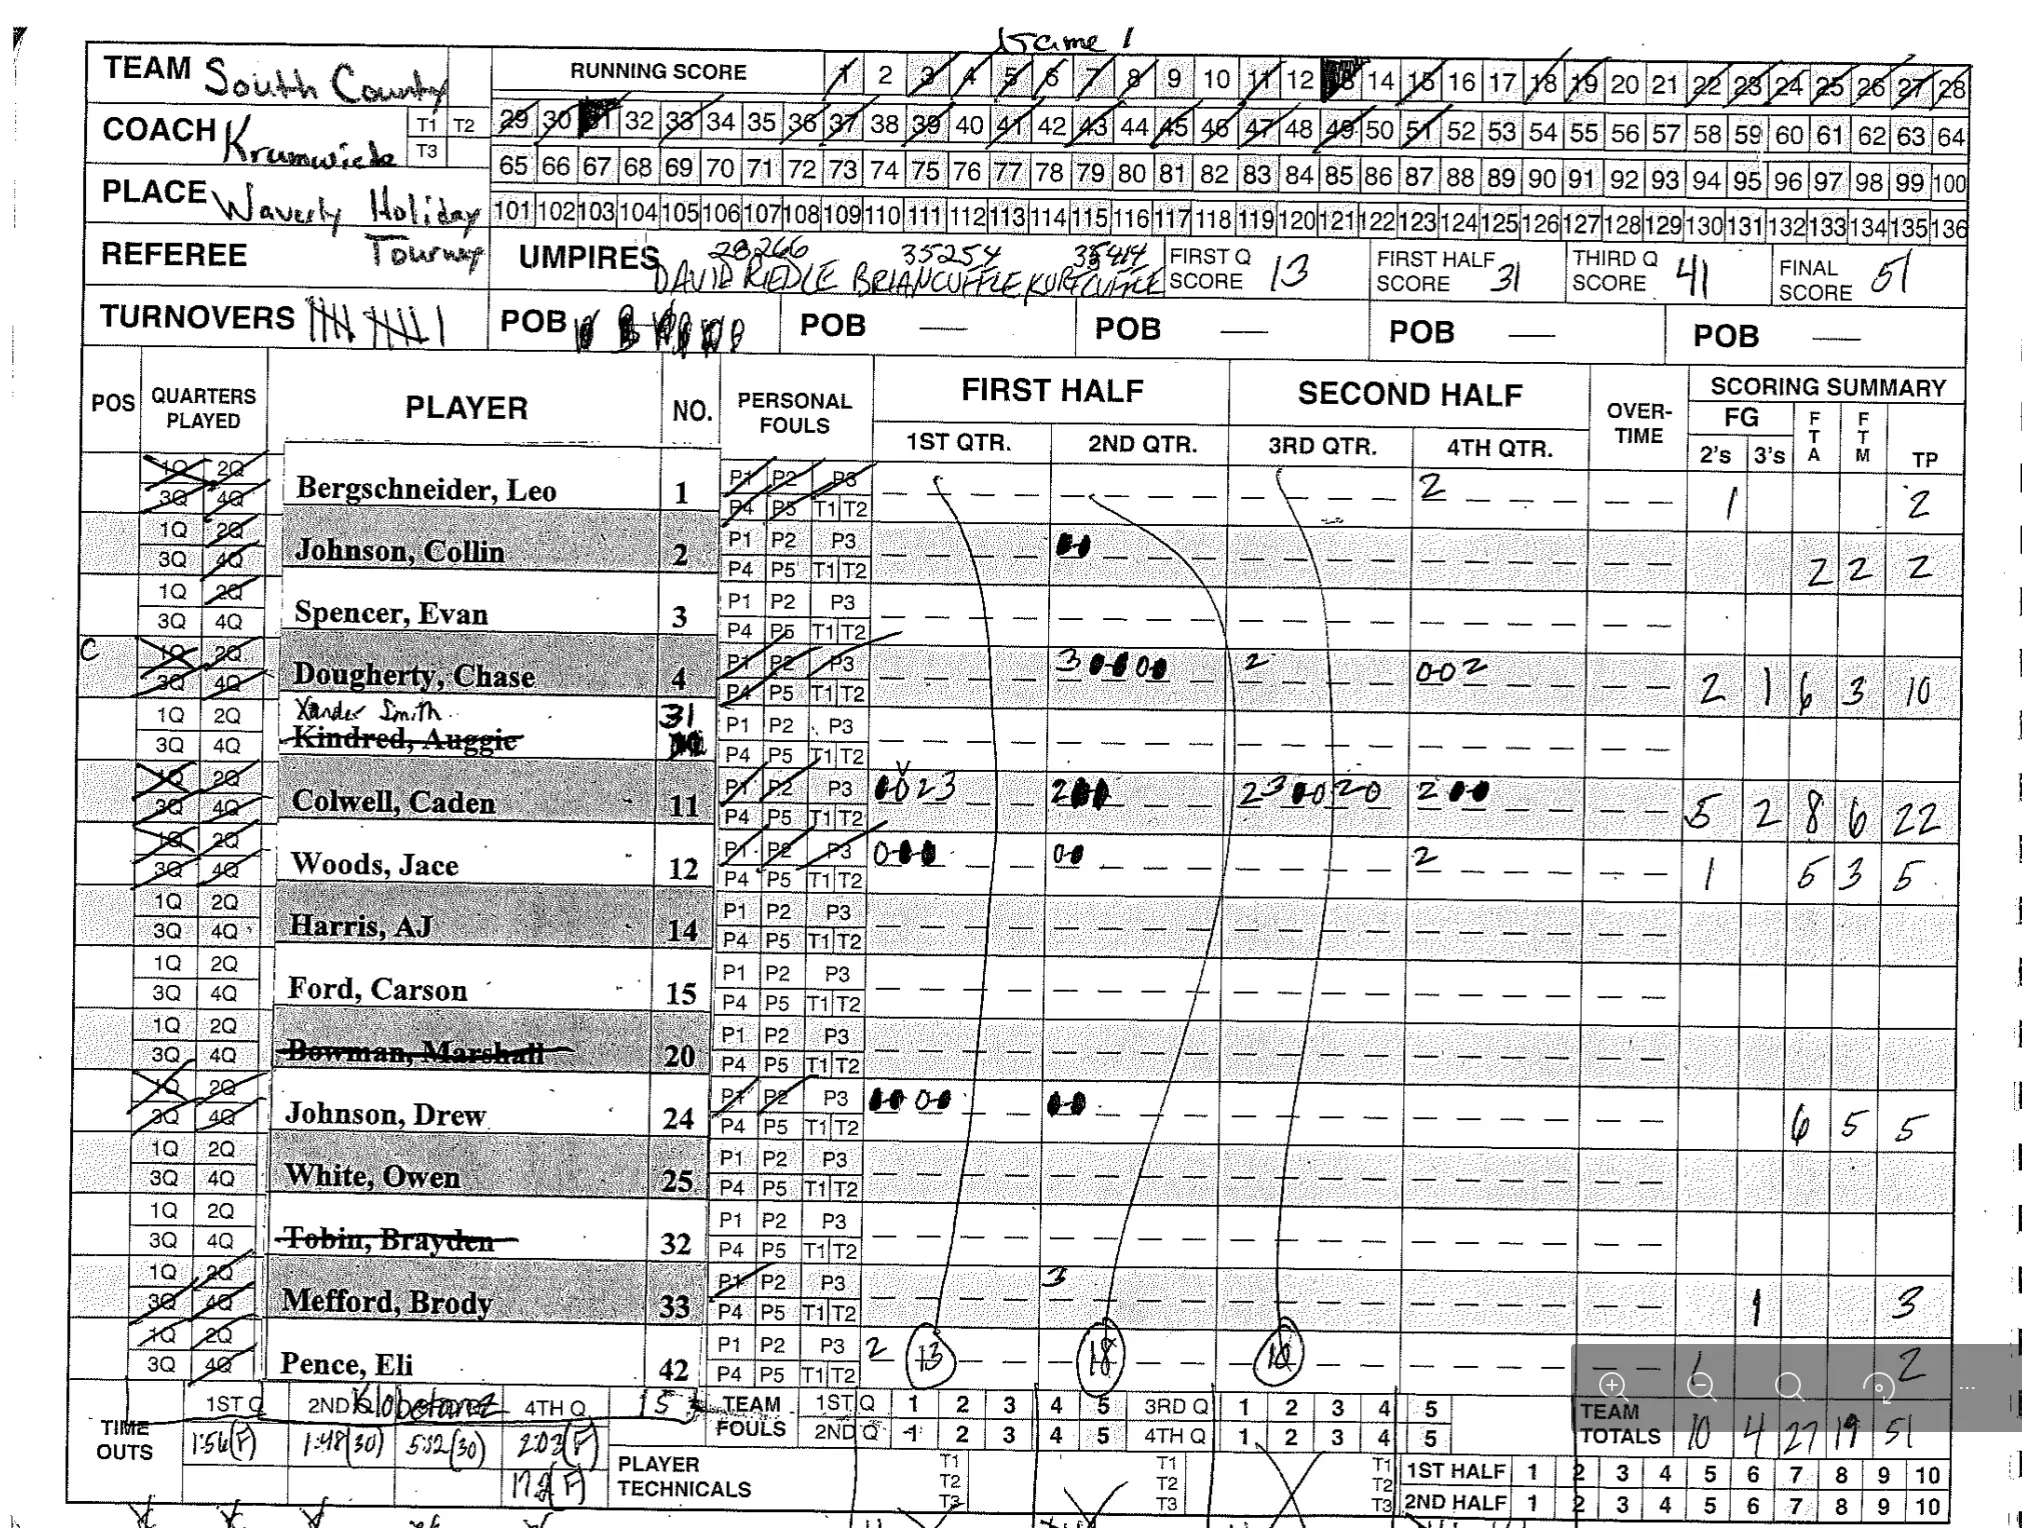 Game 1
TEAM South County RUNNING SCORE 1 2 3 4 5 6 7 8 9 10 11 12 13 14 15 16 17 18 19 20 21 22 23 24 25 26 27 28
COACH Krumwiede T1 T2 T3 29 30 31 32 33 34 35 36 37 38 39 40 41 42 43 44 45 46 47 48 49 50 51 52 53 54 55 56 57 58 59 60 61 62 63 64
65 66 67 68 69 70 71 72 73 74 75 76 77 78 79 80 81 82 83 84 85 86 87 88 89 90 91 92 93 94 95 96 97 98 99 100
PLACE Waverly Holiday Tourney 101 102 103 104 105 106 107 108 109 110 111 112 113 114 115 116 117 118 119 120 121 122 123 124 125 126 127 128 129 130 131 132 133 134 135 136
REFEREE UMPIRES 28266 35254 35414 FIRST Q SCORE 13 FIRST HALF SCORE 31 THIRD Q SCORE 41 FINAL SCORE 51
DAVID RIEDLE BRIAN CUFFLE KURT CUFFLE
TURNOVERS POB POB — POB — POB — POB —
POS QUARTERS PLAYED PLAYER NO. PERSONAL FOULS FIRST HALF SECOND HALF OVER-TIME SCORING SUMMARY
1ST QTR. 2ND QTR. 3RD QTR. 4TH QTR. FG 2's 3's FTA FTM TP
1Q 2Q 3Q 4Q Bergschneider, Leo 1 P1 P2 P3 P4 P5 T1 T2 2 1 2
1Q 2Q 3Q 4Q Johnson, Collin 2 P1 P2 P3 P4 P5 T1 T2 00 2 2 2
1Q 2Q 3Q 4Q Spencer, Evan 3 P1 P2 P3 P4 P5 T1 T2
C 1Q 2Q 3Q 4Q Dougherty, Chase 4 P1 P2 P3 P4 P5 T1 T2 3 00 00 2 00 2 2 1 6 3 10
1Q 2Q 3Q 4Q Xander Smith 31 P1 P2 P3 P4 P5 T1 T2
Kindred, Auggie
1Q 2Q 3Q 4Q Colwell, Caden 11 P1 P2 P3 P4 P5 T1 T2 00 2 3 2 00 2 3 00 0 2 0 2 00 5 2 8 6 22
1Q 2Q 3Q 4Q Woods, Jace 12 P1 P2 P3 P4 P5 T1 T2 000 00 2 1 5 3 5
1Q 2Q 3Q 4Q Harris, AJ 14 P1 P2 P3 P4 P5 T1 T2
1Q 2Q 3Q 4Q Ford, Carson 15 P1 P2 P3 P4 P5 T1 T2
1Q 2Q 3Q 4Q Bowman, Marshall 20 P1 P2 P3 P4 P5 T1 T2
1Q 2Q 3Q 4Q Johnson, Drew 24 P1 P2 P3 P4 P5 T1 T2 00 00 00 6 5 5
1Q 2Q 3Q 4Q White, Owen 25 P1 P2 P3 P4 P5 T1 T2
1Q 2Q 3Q 4Q Tobin, Brayden 32 P1 P2 P3 P4 P5 T1 T2
1Q 2Q 3Q 4Q Mefford, Brody 33 P1 P2 P3 P4 P5 T1 T2 3 1 3
1Q 2Q 3Q 4Q Pence, Eli 42 P1 P2 P3 P4 P5 T1 T2 2 13 18 10 1 2
TIME OUTS 1ST Q 2ND Q 4TH Q 15 TEAM FOULS 1ST Q 1 2 3 4 5 3RD Q 1 2 3 4 5 TEAM TOTALS 10 4 27 19 51
1:56(F) 1:48(30) 5:12(30) 2:03(F) 2ND Q 1 2 3 4 5 4TH Q 1 2 3 4 5
17.2(F) PLAYER TECHNICALS T1 T2 T3 T1 T2 T3 T1 T2 T3 1ST HALF 1 2 3 4 5 6 7 8 9 10
2ND HALF 1 2 3 4 5 6 7 8 9 10